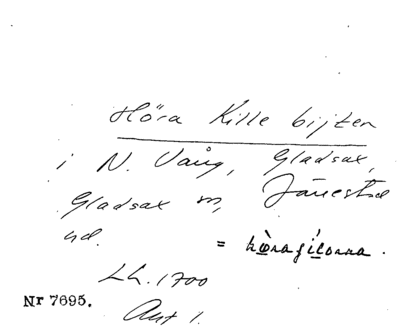 Höra Kille bijten
i N. Vång, Gladsax,
Gladsax sn, Järrestad
hd.
= hö̀raɟílorna.
Lh. 1700
Akt 1.
Nr 7695.